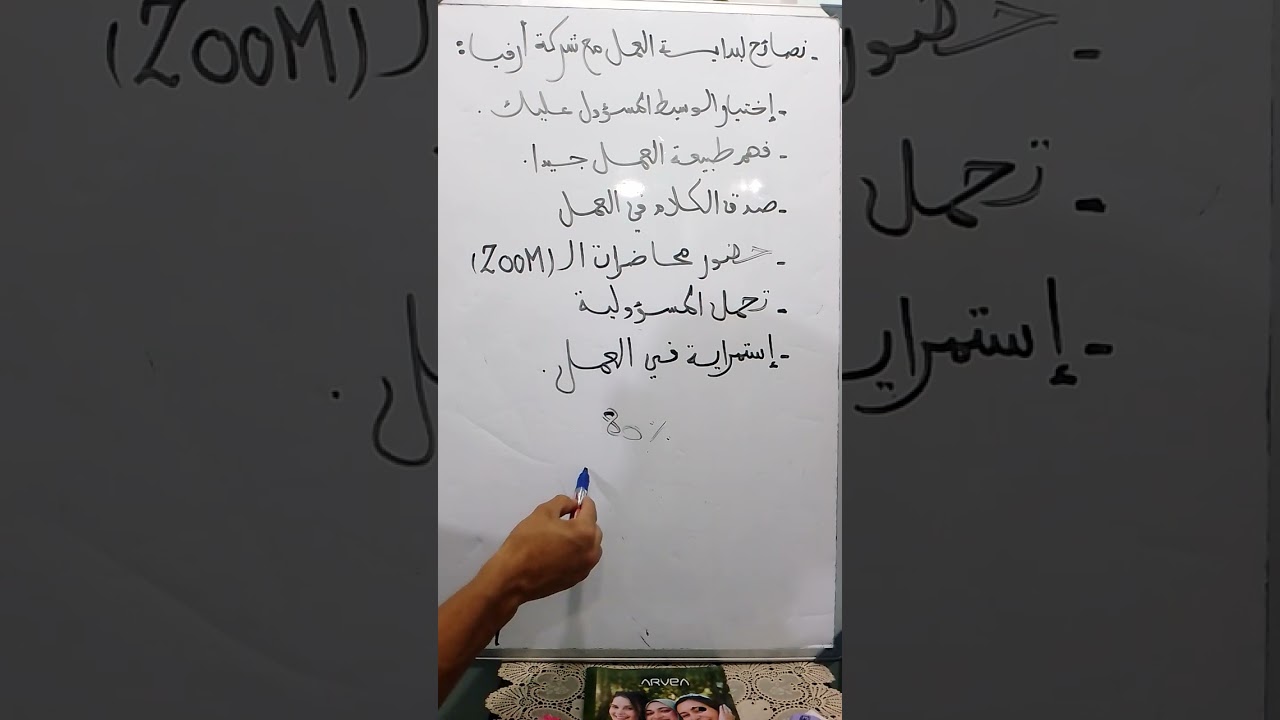 - نصائح لبداية العمل مع شركة أرفيا:
- إختيار الوسيط المسؤول عليك.
- فهم طبيعة العمل جيدا.
- صدق الكلام في العمل
- حضور محاضرات الـ (ZOOM)
- تحمل المسؤولية
- إستمراية في العمل.
80%
ARVEA